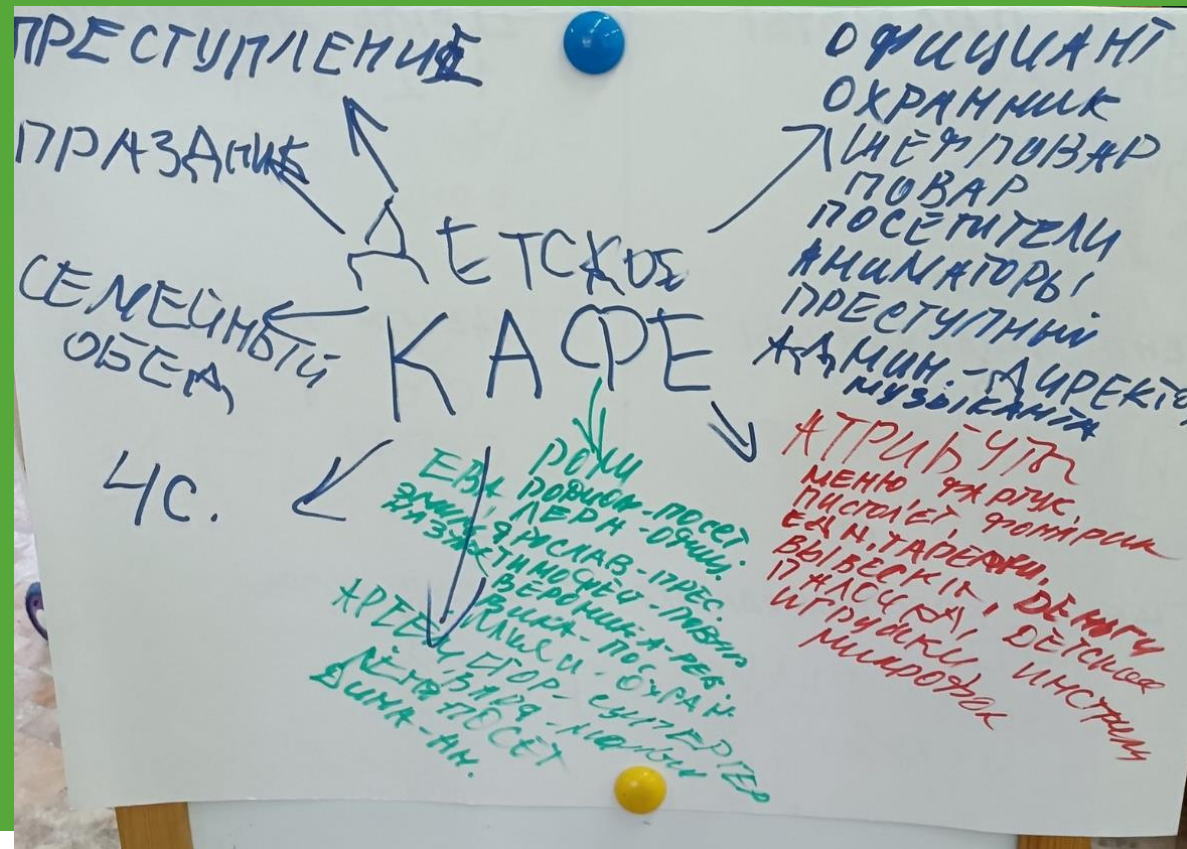 ПРЕСТУПЛЕНИЕ
ПРАЗДНИК
СЕМЕЙНЫЙ
ОБЕД
ЧС.
ДЕТСКОЕ
КАФЕ
ОФИЦИАНТ
ОХРАННИК
ШЕФПОВАР
ПОВАР
ПОСЕТИТЕЛИ
АНИМАТОРЫ
ПРЕСТУПНЫЙ
АДМИН.-ДИРЕКТО
МУЗЫКАНТА
РОЛИ
ЕВА, РОДИОН-ПОСЕТ.
ЛЕРА-ОФИЦ.
ЯРОСЛАВ-ПРЕС.
ТИМОФЕЙ-ПОВАР
ВЕРОНИКА-РЕБ.
ВИКА-ПОС
ИЛЬЯ И.-ОХРАН
АРСЕНИЙ, ЕГОР-СУПЕРГЕР
ПОСЕТ
ДИНА-АН.
АТРИБУТЫ
МЕНЮ ФАРТУК,
ПИСТОЛЕТ, ФОНАРИК
ЕДА, ТАРЕЛКИ,
ВЫВЕСКА, ДЕНЬГИ
ПАЛОЧКА, ДЕТСКИЕ
ИГРУШКИ ИНСТРУМ
МИКРОФОН